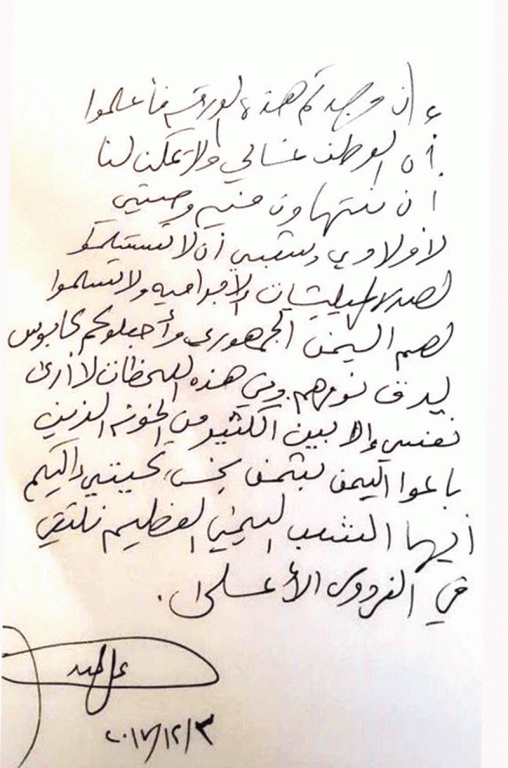 إن وجدتم هذه الورقة فأعلموا
أن الوطن غالي ولا يمكن لنا
أن نتهاون فيه وصيتي
لأولادي وشعبي أن لا تستسلمو
لهذه الميليشيات الإجراميه ولا تسلموا
لهم اليمن الجمهوري وأجعلوكم كابوس
يدق نومهم وفي هذه اللحظات لا أرى
نفسي إلا بين الكثير من الخونه الذين
باعوا اليمن بثمن بخس، تحيتي إليكم
أيها الشعب اليمني العظيم نلتقي
في الفردوس الأعلى.
٢٠١٧/١٢/٣